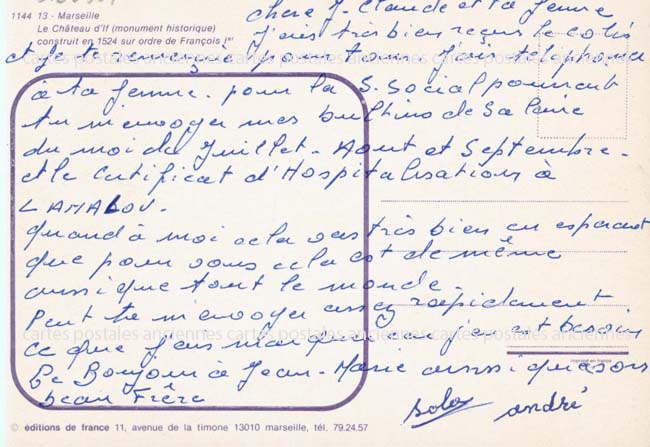 1144 13 - Marseille
Le Château d'If (monument historique)
construit en 1524 sur ordre de François Ier
chere J. Claude et ta femme
J'ais très bien reçus le colis
et je t'en remerçi pour tom J'ais téléphoné
à ta femme. pour la S. Social pourrait
tu m'envoyer mes bultins de Salaire
du moi de Juillet - Aout et Septembre -
et le Certificat d'Hospitalisations à
LAMALOU.
quand à moi cela vas très bien en esperant
que pour vous cela est de même
aussi que tout le monde.
Peut tu m'envoyer assez rapidement
ce que j'ais marqué car j'en est besoin
Le Bonjour à Jean-Marie aussi qu'a son
beau Frère
André
cartes postales anciennes cartes postales anciennes cartes postales anciennes
cartes postales anciennes cartes postales anciennes cartes postales anciennes
imprimé en france
© éditions de france 11, avenue de la timone 13010 marseille, tél. 79.24.57